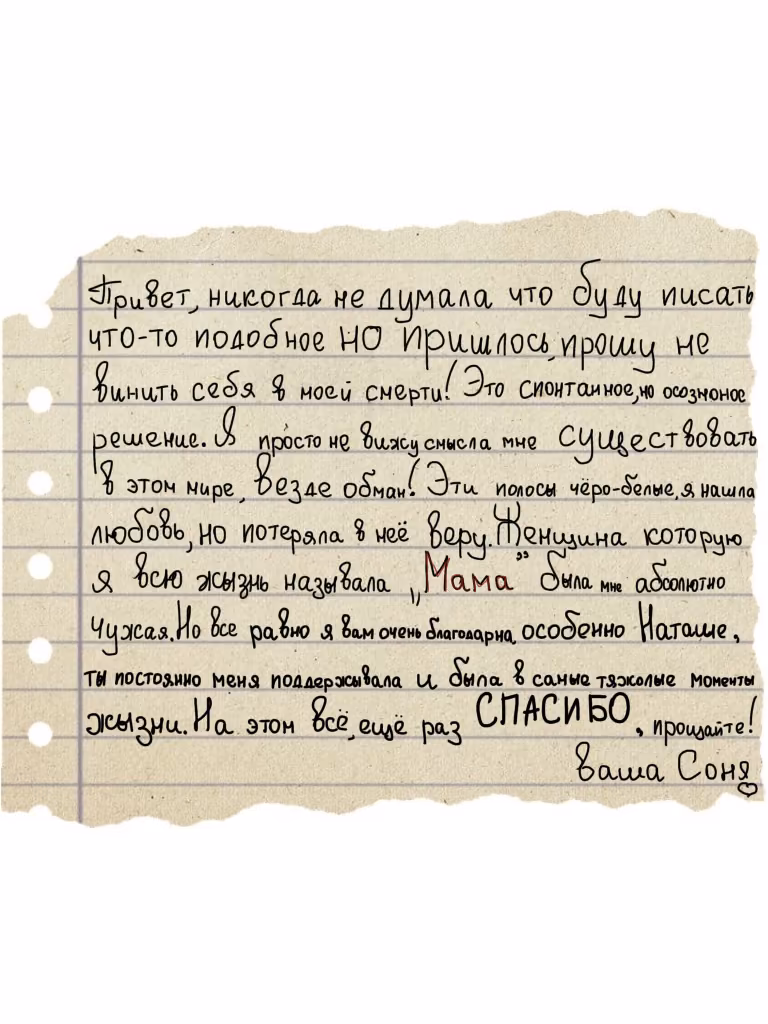 Привет, никогда не думала что буду писать
что-то подобное НО пришлось, прошу не
винить себя в моей смерти! Это спонтанное, но осозноное
решение. Я просто не вижу смысла мне существовать
в этом мире, везде обман! Эти полосы чёро-белые, я нашла
любовь, но потеряла в неё веру. Женщина которую
я всю жызнь называла „Мама” была мне абсолютно
чужая. Но все равно я вам очень благодарна, особенно Наташе,
ты постоянно меня поддержывала и была в самые тяжолые моменты
жызни. На этом всё, ещё раз СПАСИБО, прощайте!
ваша Соня